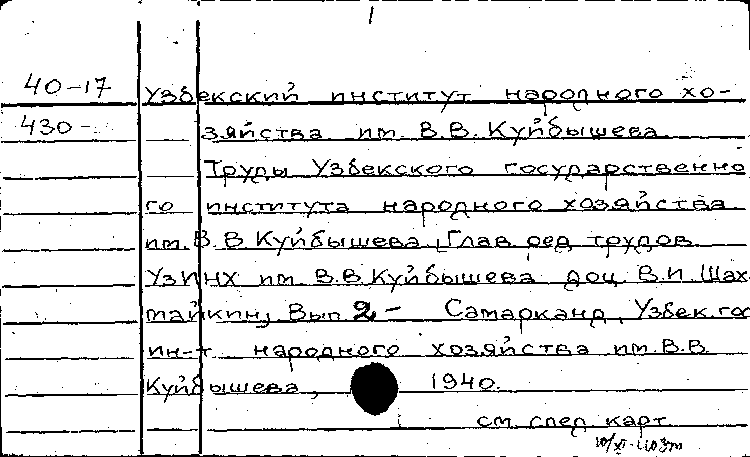 40-17 Узбекский институт народного хо-
430- зяйства им. В.В. Куйбышева.
Труды Узбекского государственно
го института народного хозяйства
им. В.В Куйбышева, Глав ред трудов
УзИНХ им. В.В Куйбышева доц. В.И. Шах
майкин, Вып 2- Самарканд, Узбек.гос
ин-т народного хозяйства им.В.В.
Куйбышева, 1940.
см. след. карт.